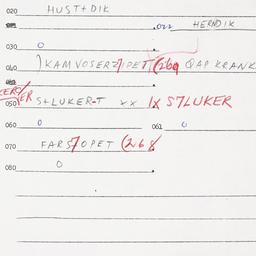 020 HUST+DIK
022 HERNDIK
030 0
040 )KAMVOSERZ7PET (269 QAP KRANK
050 S+LUKER-T xx 1x S7LUKER
060 0 061 0
070 FARS7OPET (268
080 0